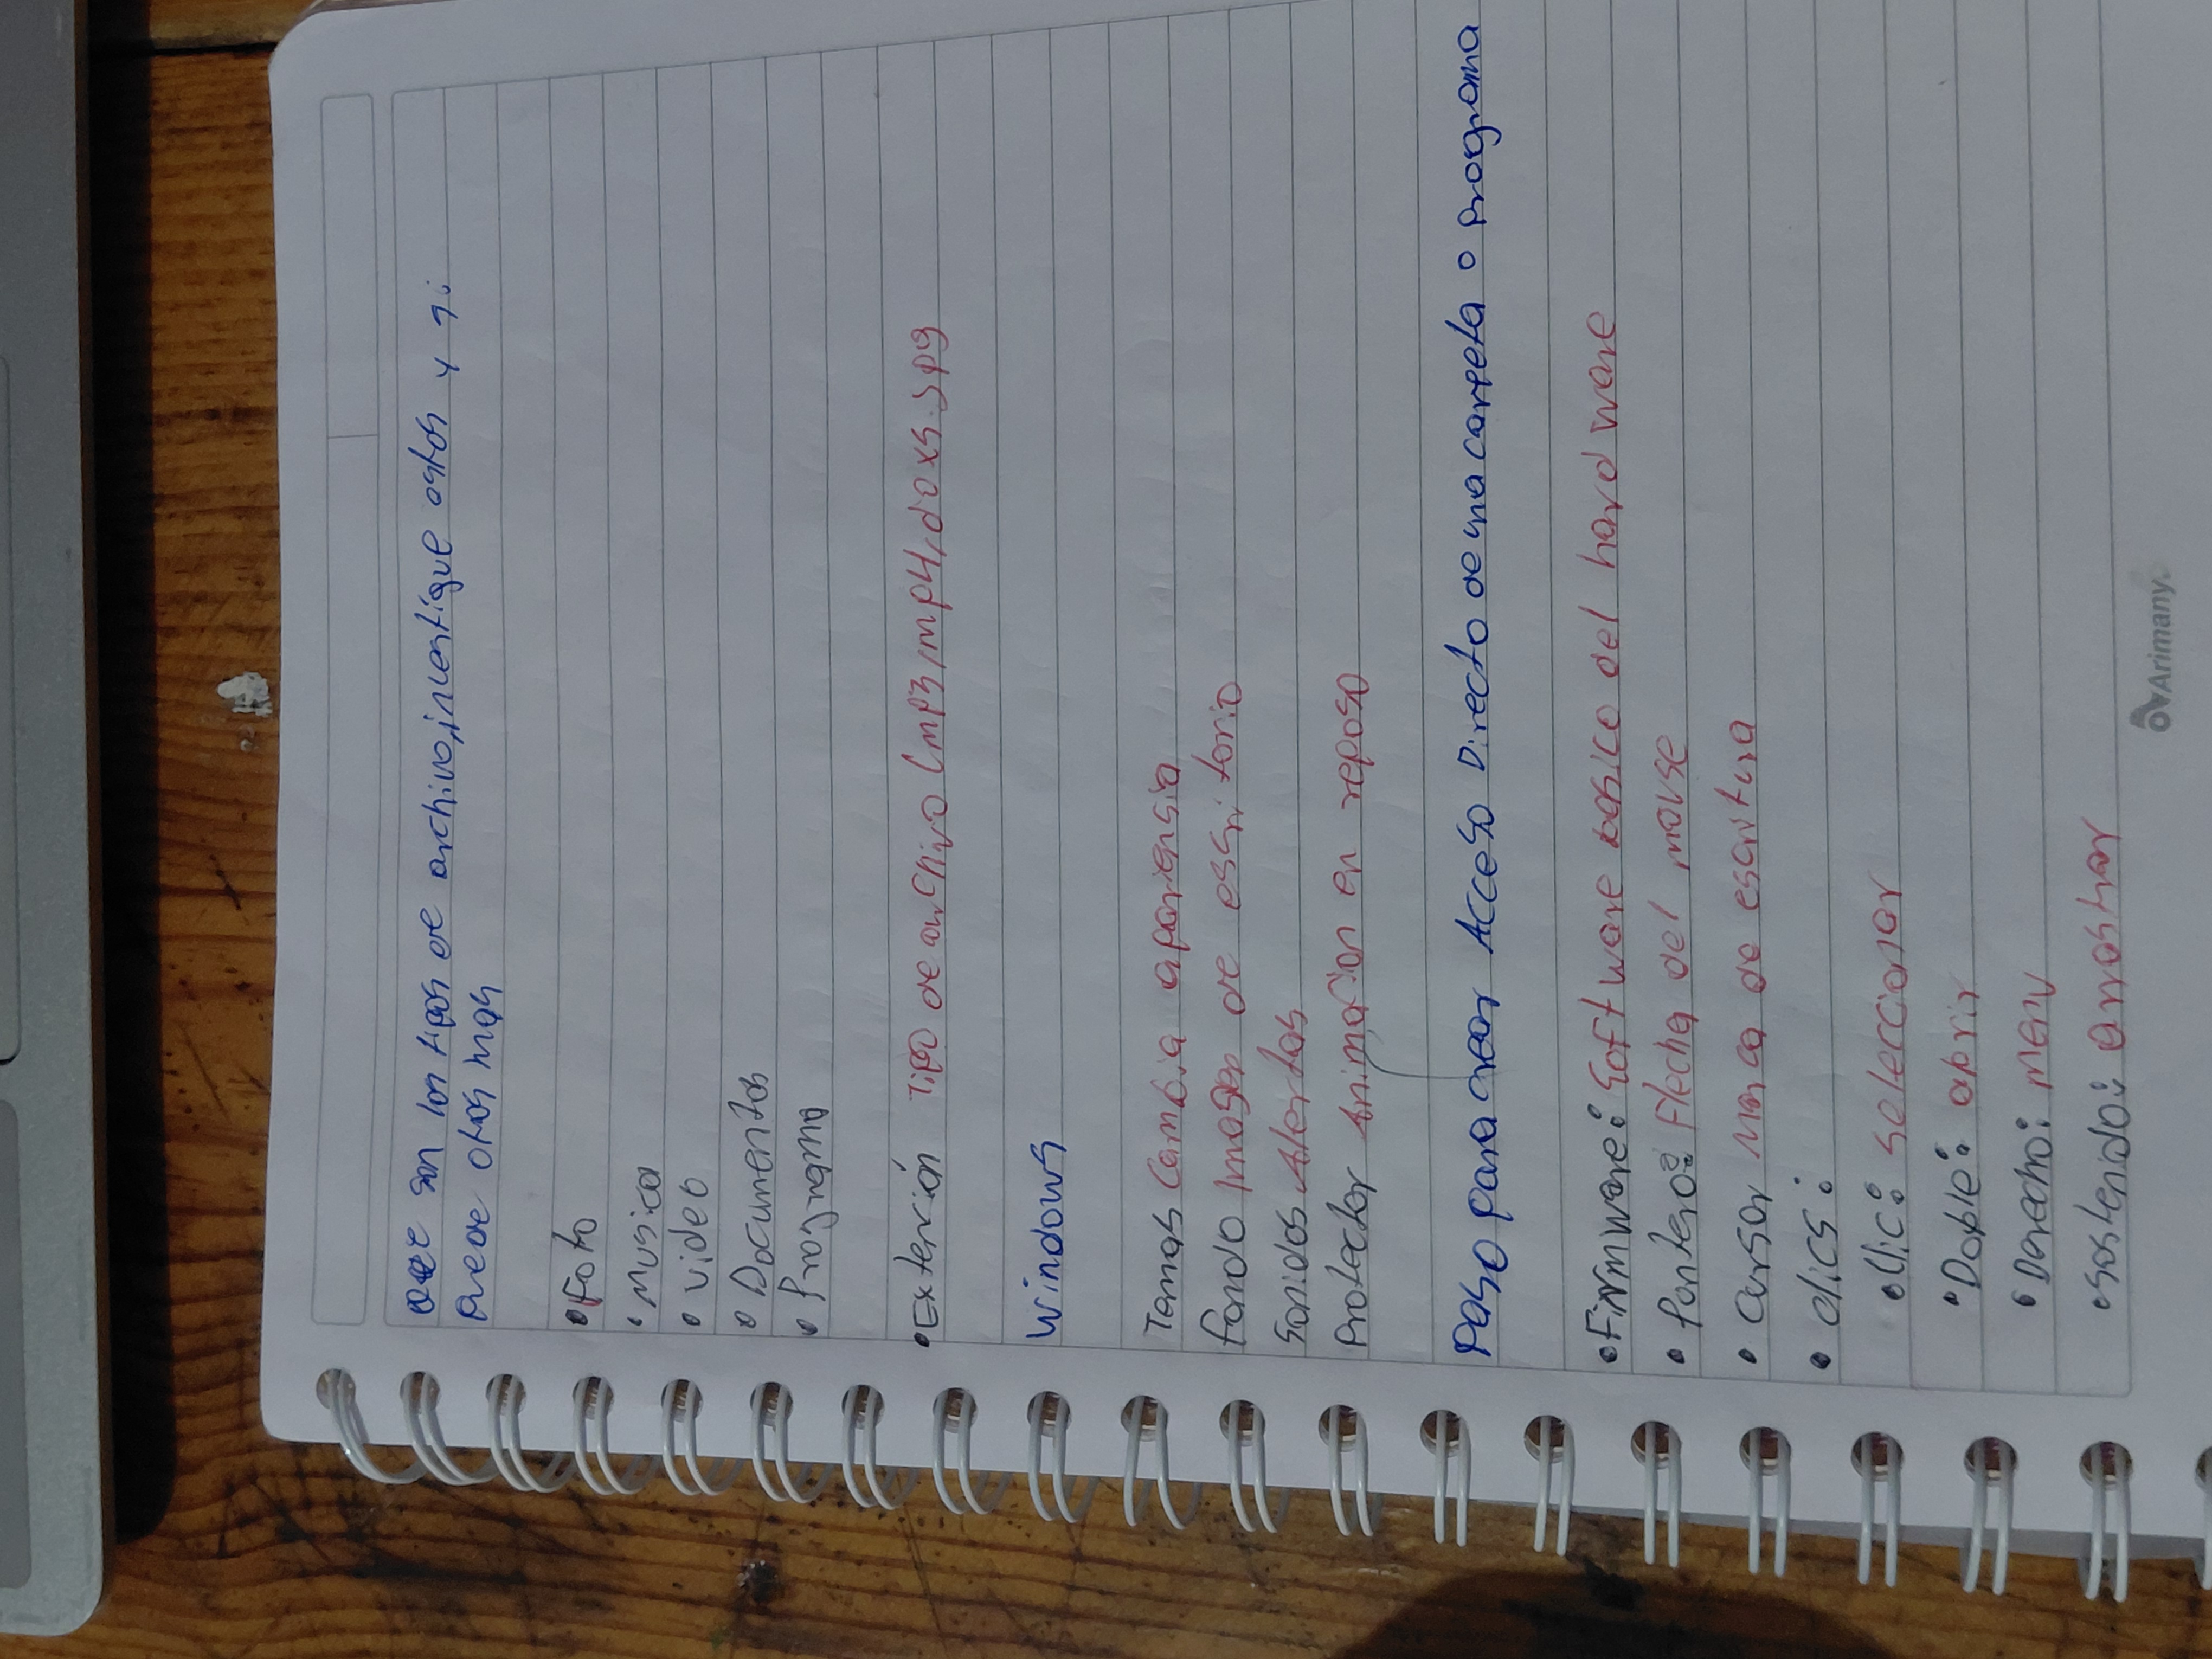 que son los tipos de archivo, investigue estos y si
puede otros mas
• Foto
• Musica
• video
• Documentos
• Programa
• Extención Tipo de archivo (mp3, mp4, doxs. Jpg
Windows
Temas Cambia apariensia
fondo Imagen de essritorio
Sonidos Alertas
Protector Animacion en reposo
Paso para crear Acceso Directo de una carpeta o programa
• Firmware: Software basico del hardware
• Puntero: Flecha del mouse
• Cursor Marca de escritura
• clics:
• Clic: seleccionar
• Doble: abrir
• Derecho: menu
• sostenido: arrastrar
Arimany